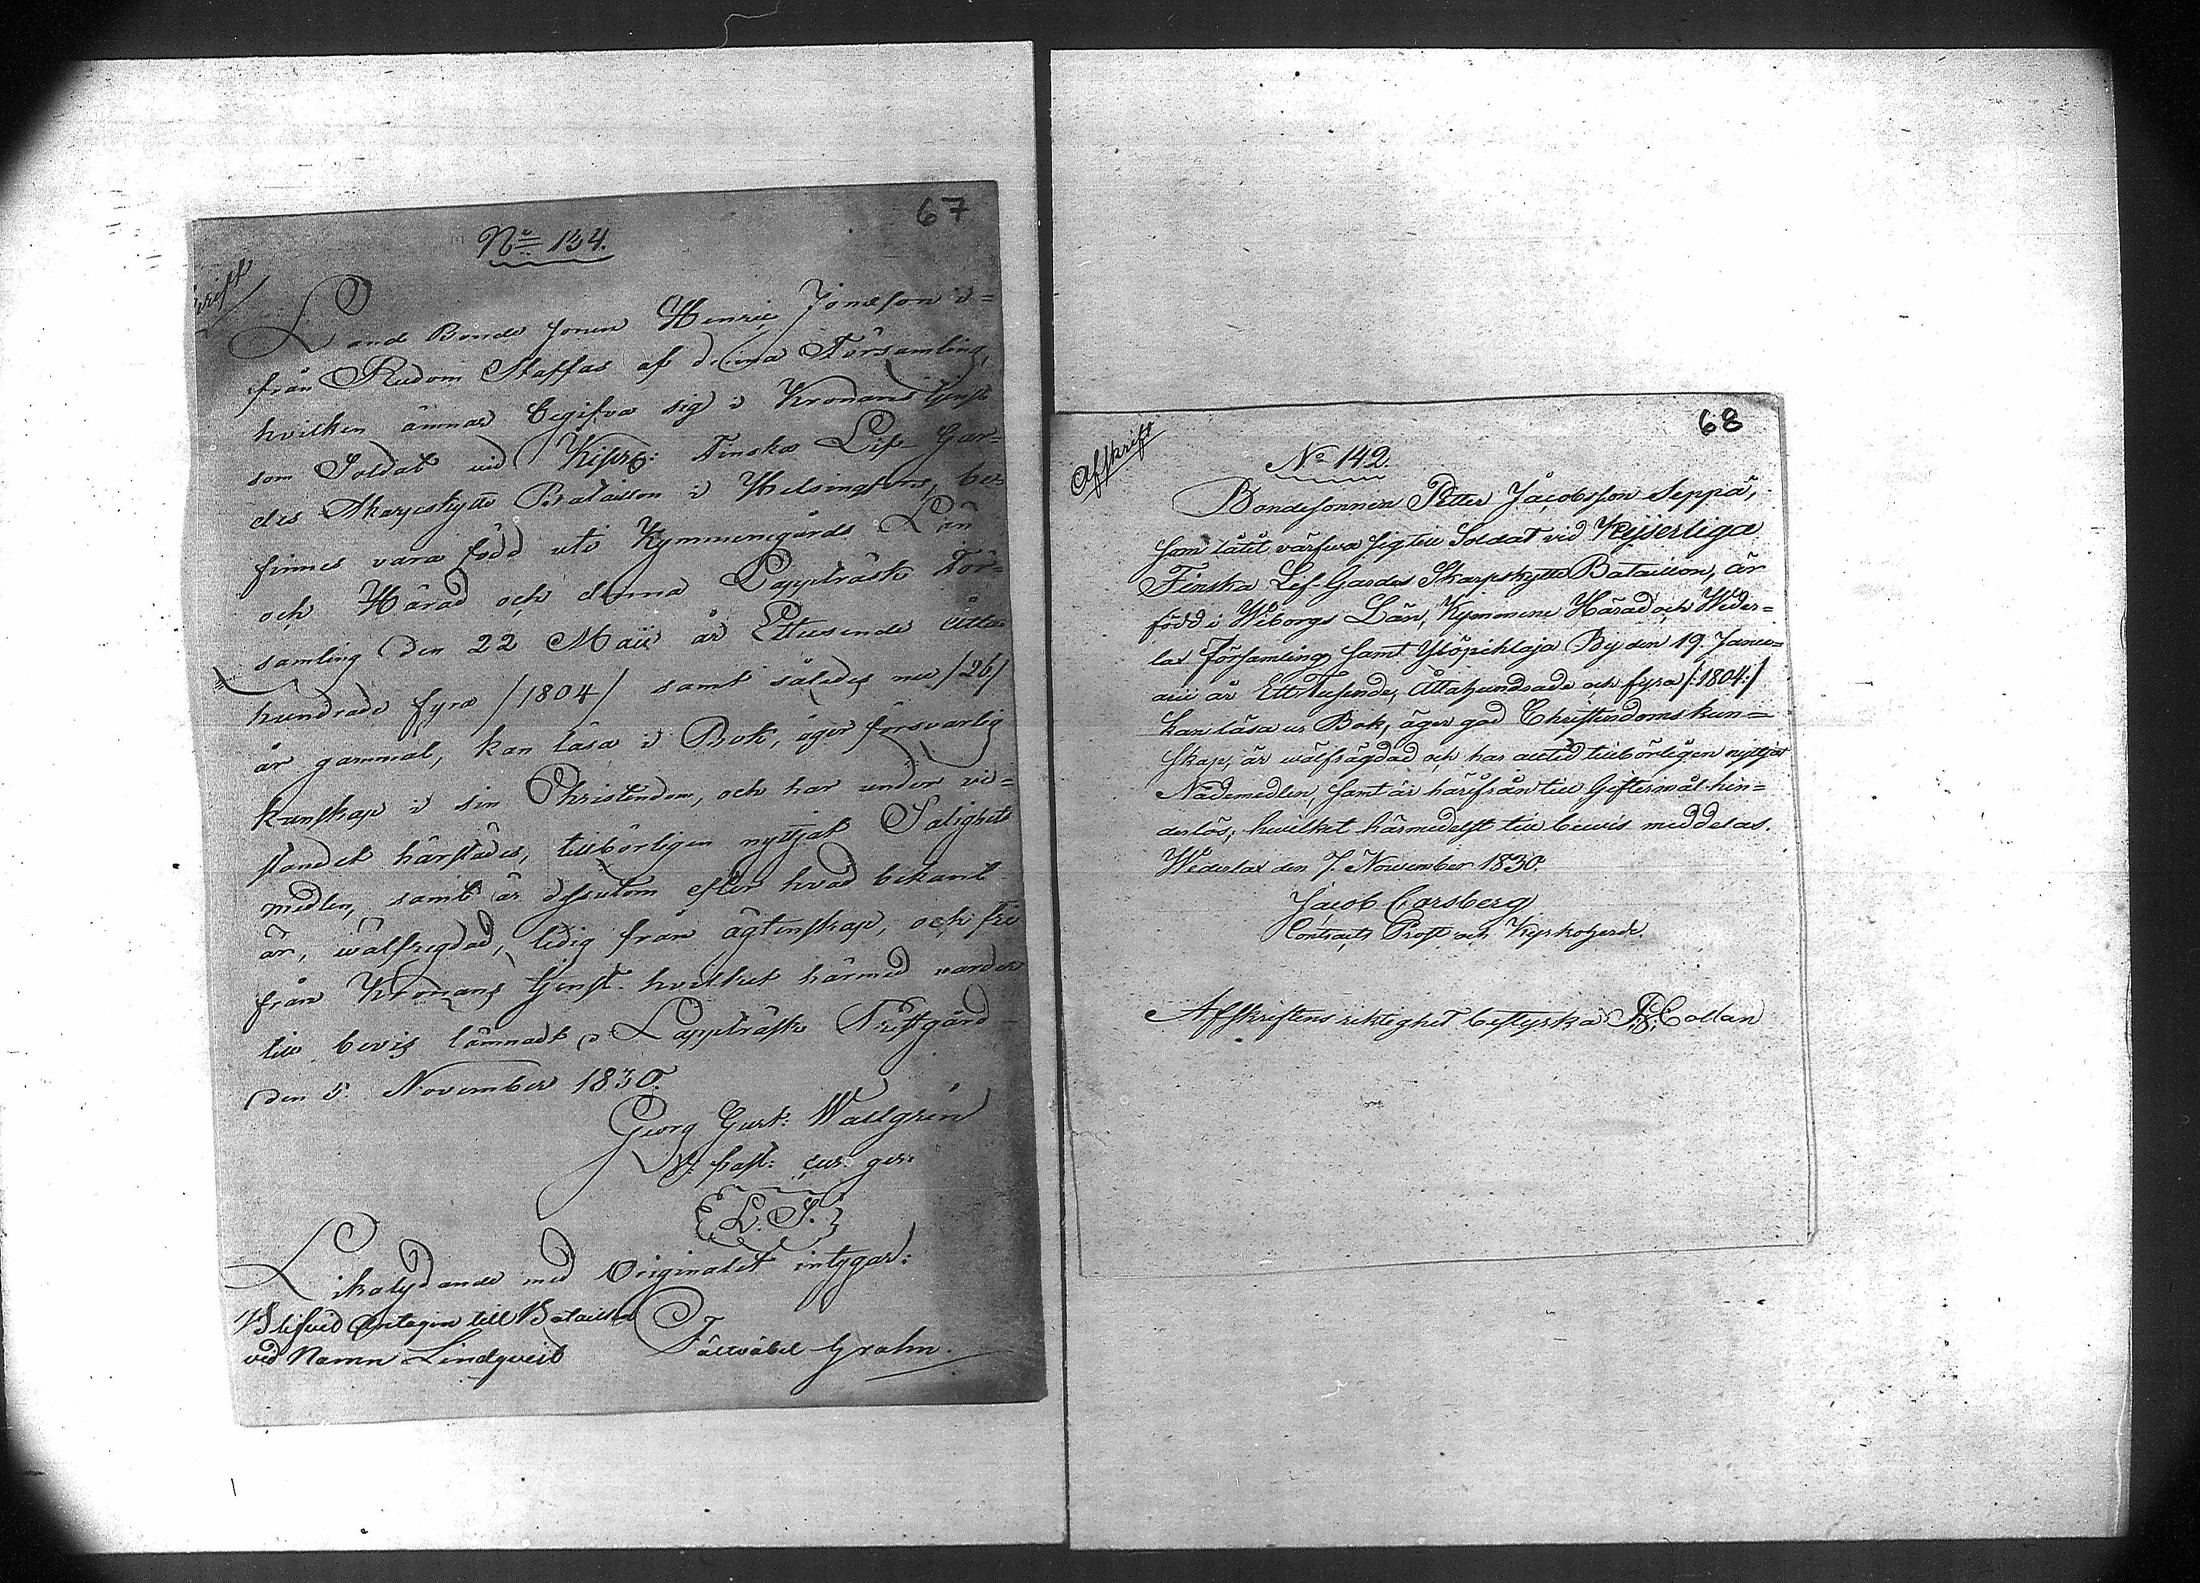 67
No 134.
Land Bonde sonen Henric Jonasson i=
från Rudom Staffas af denna Församling,
hvilken ämnar begifva sig i Kronans tjenst
som Soldat vid Kejserl: Finska Lif Gar=
des Skarpskytte Bataillon i Helsingfors, be=
finnes vara född uti Kymmenegårds Län
och Härad och denna Lappträsk För=
samling den 22 Maii år Ettusende åtta
hundrade fyra /1804/ samt således nu /26/
år gammal, kan läsa i Bok, äger försvarlig
kunskap i sin Christendom, och har under vi=
standet härstädes, tillbörligen nyttjat Salighets
medlen, samt är dessutom efter hvad bekant
är, wälfregdad, ledig från ägtenskap, och fri
från Kronans tjenst. hvilket härmed warder
till bevis lämnadt, Lappträsk Prestgård
den 5. November 1830.
Georg Gust: Wallgrén
V: past: cur. ger:
L. S.
Likalydande med Originalet intygar:
Blifvid Antagen till Bataillon
ved Namn Lindqveist
Fältväbel Grahn.
68
Afskrift
No 142.
Bondesonnen Petter Jacobsson Seppä,
som låtit värfva sig till Soldat vid Kejserliga
Finska Lif-Gardes Skarpskytte Bataillon, är
född i Wiborgs Län, Kymmene Härad och Weder=
lax Församling samt Ylöpihlaja By den 19. Janu=
arii år Ett Tusende, Åttahundrade och fyra /:1804:/
kan läsa ur Bok, äger god Christendoms kun=
skap, är wälfrägdad och har alltid tillbörligen nyttjat
Nådemedlen, samt är härifrån till Giftermål hin=
derlös; hwilket härmedelst till bewis meddelas.
Wederlax den 7. November 1830.
Jacob Carsberg
Contracts Prost och Kyrkoherde.
Afskriftens riktighet bestyrka Collan